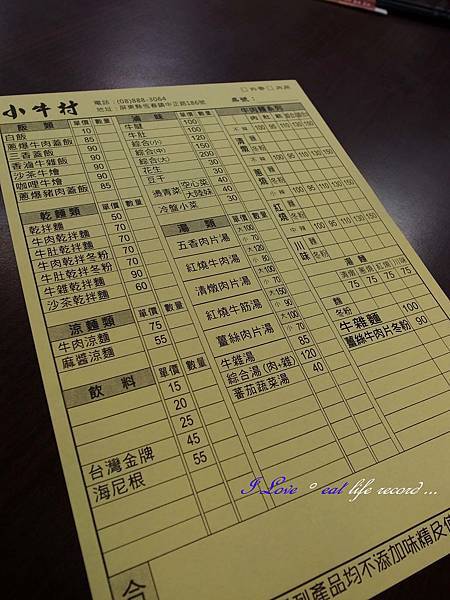 小牛村
電話：(08)888-3064
地址：屏東縣恆春鎮中正路186號
□外帶 □內用
桌號：
飯類 單價 數量
白飯 10
蔥爆牛肉蓋飯 85
三香蓋飯 90
香滷牛雜飯 90
沙茶牛燴 90
咖哩牛燴 90
蔥爆豬肉蓋飯 85
乾麵類 單價 數量
乾拌麵 50
牛肉乾拌麵 70
牛肚乾拌麵 70
牛肉乾拌冬粉 70
牛肚乾拌冬粉 70
牛雜乾拌麵 90
沙茶乾拌麵 60
涼麵類 單價 數量
牛肉涼麵 75
麻醬涼麵 55
飲料 單價 數量
15
20
25
台灣金牌 45
海尼根 55
滷味 單價 數量
牛腱 100
牛肚 100
綜合(小) 120
綜合(中) 200
綜合(大) 300
花生 30
豆干 30
燙青菜 空心菜 40
大陸妹 40
冷盤小菜 30
湯類 單價 數量
五香肉片湯 大100
小70
紅燒牛肉湯 大120
小70
清燉肉片湯 大100
小70
紅燒牛筋湯 大150
小90
薑絲肉片湯 大100
小70
牛雜湯 85
綜合湯(肉+雜) 120
蕃茄蔬菜湯 40
牛肉麵系列
清燉 麵 冬粉
不辣 100 95 110 130 150
蔥燒 麵 冬粉
不辣 100 95 110 130 150
紅燒 麵 冬粉
中辣 100 95 110 130 150
川味 麵 冬粉
100 95 110 130 150
湯麵
清燉 蔥燒 紅燒 川味
75 75 75 75
麵
冬粉
牛雜麵 100
薑絲牛肉片冬粉 90
合
列產品均不添加味精及
I Love ° eat life record ...